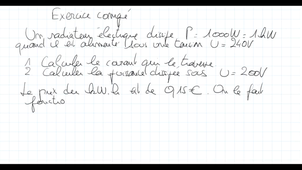 Exercice corrigé
Un radiateur électrique dissipe P = 1000W = 1kW
quand il est alimenté sous une tension U = 240V
1 Calculer le courant qui le traverse
2 Calculer la puissance dissipée sous U = 200V
Le prix du kW.h est de 0,15€. On le fait
fonctio